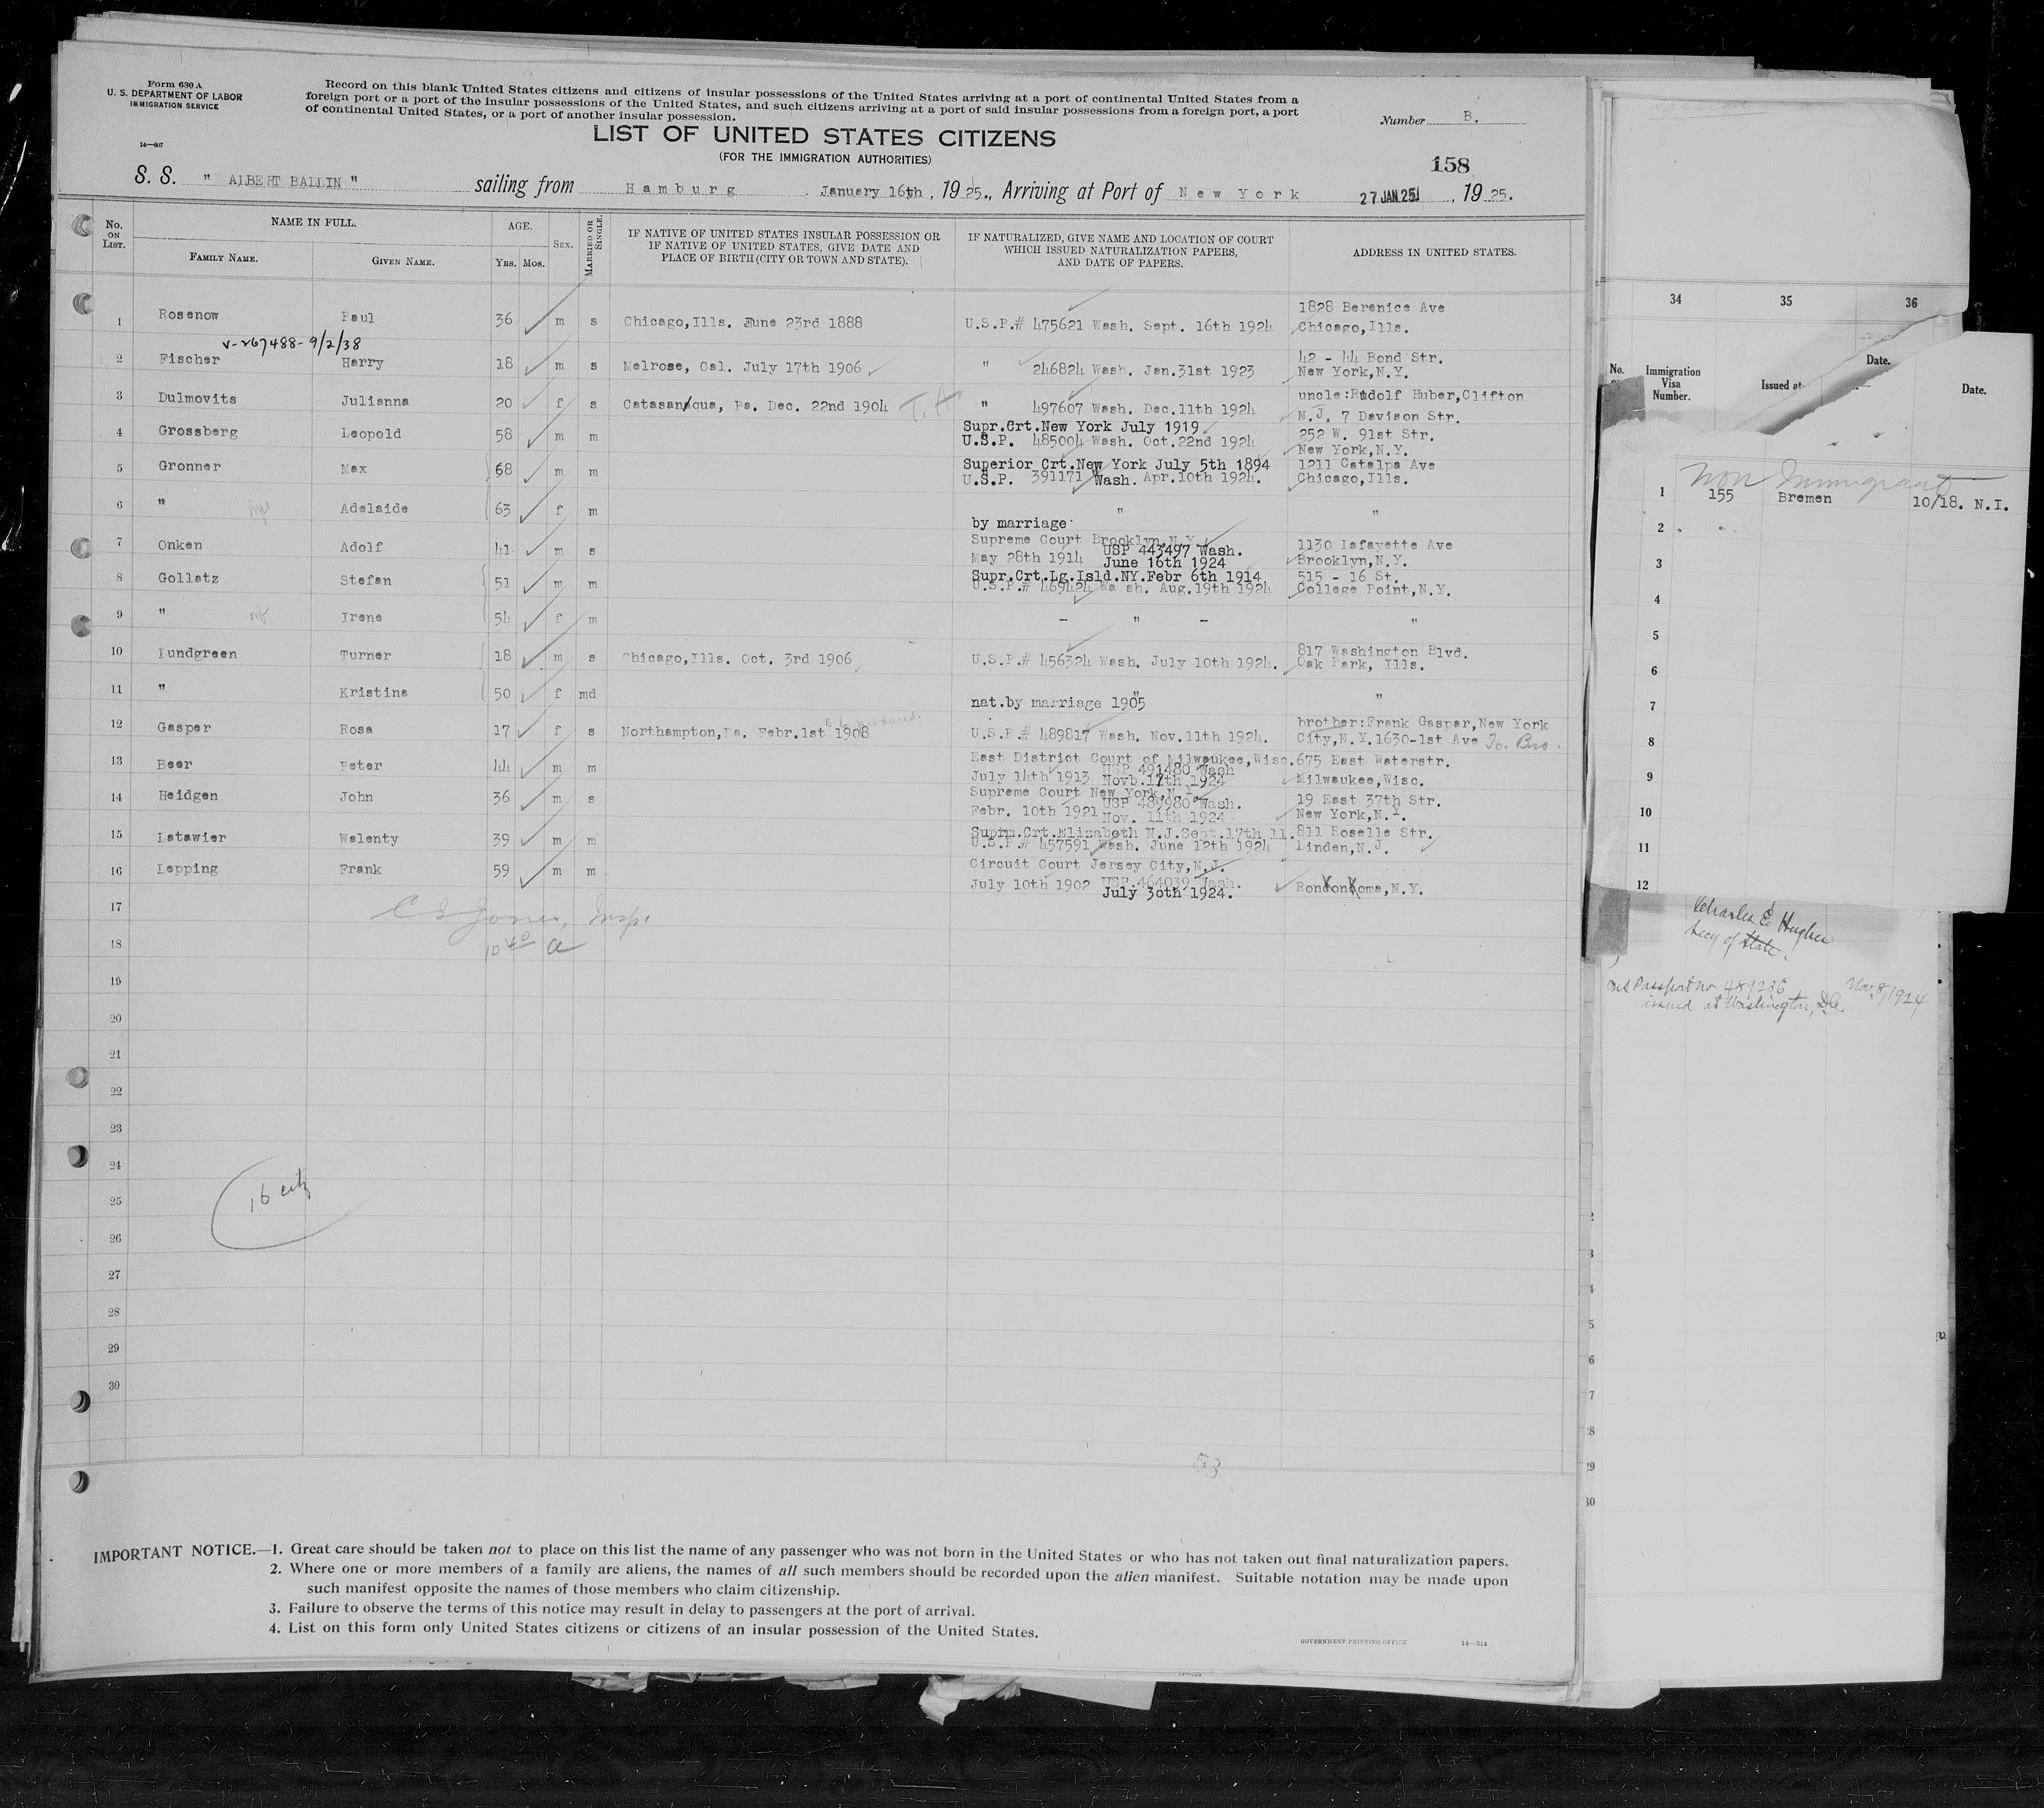 Form 630 A
U. S. DEPARTMENT OF LABOR
IMMIGRATION SERVICE
14—607
Record on this blank United States citizens and citizens of insular possessions of the United States arriving at a port of continental United States from a
foreign port or a port of the insular possessions of the United States, and such citizens arriving at a port of said insular possessions from a foreign port, a port
of continental United States, or a port of another insular possession.
Number B.
LIST OF UNITED STATES CITIZENS
(FOR THE IMMIGRATION AUTHORITIES)
158
S. S. " ALBERT BALLIN " sailing from Hamburg January 16th, 1925., Arriving at Port of New York 27 JAN 25, 1925.
No. ON LIST. NAME IN FULL. FAMILY NAME. GIVEN NAME. AGE. YRS. MOS. SEX. MARRIED OR SINGLE.
IF NATIVE OF UNITED STATES INSULAR POSSESSION OR
IF NATIVE OF UNITED STATES, GIVE DATE AND
PLACE OF BIRTH (CITY OR TOWN AND STATE).
IF NATURALIZED, GIVE NAME AND LOCATION OF COURT
WHICH ISSUED NATURALIZATION PAPERS,
AND DATE OF PAPERS.
ADDRESS IN UNITED STATES.
1 Rosenow Paul 36 m s Chicago,Ills. June 23rd 1888 U.S.P.# 475621 Wash. Sept. 16th 1924 1828 Berenice Ave
Chicago,Ills.
v-267488-9/2/38
2 Fischer Harry 18 m s Melrose, Cal. July 17th 1906 " 246824 Wash. Jan.31st 1923 42 - 44 Bond Str.
New York,N.Y.
3 Dulmovits Julianna 20 f s Catasanaoua, Pa. Dec. 22nd 1904 " 497607 Wash. Dec.11th 1924 uncle:Rudolf Huber,Clifton
N.J. 7 Davison Str.
4 Grossberg Leopold 58 m m Supr.Crt.New York July 1919 252 W. 91st Str.
U.S.P. 485004 Wash. Oct.22nd 1924 New York,N.Y.
5 Gronner Max 68 m m Superior Crt.New York July 5th 1894 1211 Catalpa Ave
U.S.P. 391171 Wash. Apr.10th 1924. Chicago,Ills.
6 " Adelaide 63 f m " "
by marriage
7 Onken Adolf 41 m s Supreme Court Brooklyn,N.Y. 1130 Lafayette Ave
May 28th 1914 USP 443497 Wash. Brooklyn,N.Y.
June 16th 1924
8 Gollatz Stefan 51 m m Supr.Crt.Lg.Isld.NY.Febr 6th 1914 515 - 16 St.
U.S.P.# 469424 Wash. Aug.19th 1924 College Point,N.Y.
9 " Irene 54 f m - " - "
10 Lundgreen Turner 18 m s Chicago,Ills. Oct. 3rd 1906 U.S.P.# 456324 Wash. July 10th 1924. 817 Washington Blvd.
Oak Park, Ills.
11 " Kristina 50 f md " "
nat.by marriage 1905
12 Gasper Rosa 17 f s Northampton,Pa. Febr.1st 1908 U.S.P.# 489817 Wash. Nov.11th 1924. brother:Frank Gaspar,New York
City,N.Y.1630-1st Ave To. Bro.
13 Beer Peter 44 m m East District Court of Milwaukee,Wisc. 675 East Waterstr.
July 14th 1913 USP 491480 Wash Milwaukee,Wisc.
Novb.17th 1924
14 Heidgen John 36 m s Supreme Court New York,N.Y. 19 East 37th Str.
Febr. 10th 1921 USP 489980 Wash. New York,N.Y.
Nov. 11th 1924
15 Latawier Walenty 39 m m Suprm.Crt.Elizabeth N.J.Sept.17th 11. 811 Roselle Str.
U.S.P.# 457591 Wash. June 12th 1924 Linden,N.J.
16 Lepping Frank 59 m m Circuit Court Jersey City,N.J.
July 10th 1902 USP 464039 Wash. RonKonKoma,N.Y.
July 30th 1924.
17
C S Jones, Insp.
18
10 40 a
19
20
21
22
23
24
25
16 citz
26
27
28
29
30
53
IMPORTANT NOTICE.—1. Great care should be taken not to place on this list the name of any passenger who was not born in the United States or who has not taken out final naturalization papers.
2. Where one or more members of a family are aliens, the names of all such members should be recorded upon the alien manifest. Suitable notation may be made upon
such manifest opposite the names of those members who claim citizenship.
3. Failure to observe the terms of this notice may result in delay to passengers at the port of arrival.
4. List on this form only United States citizens or citizens of an insular possession of the United States.
GOVERNMENT PRINTING OFFICE 14—314
34 35 36
No. Immigration Visa Number. Issued at Date. Date.
Non Immigrant
1 155 Bremen 10/18. N.I.
2
3
4
5
6
7
8
9
10
11
12
Charles E Hughes
Secy of State.
US Passport no 489236 Nov 8/1924
issued at Washington, DC.